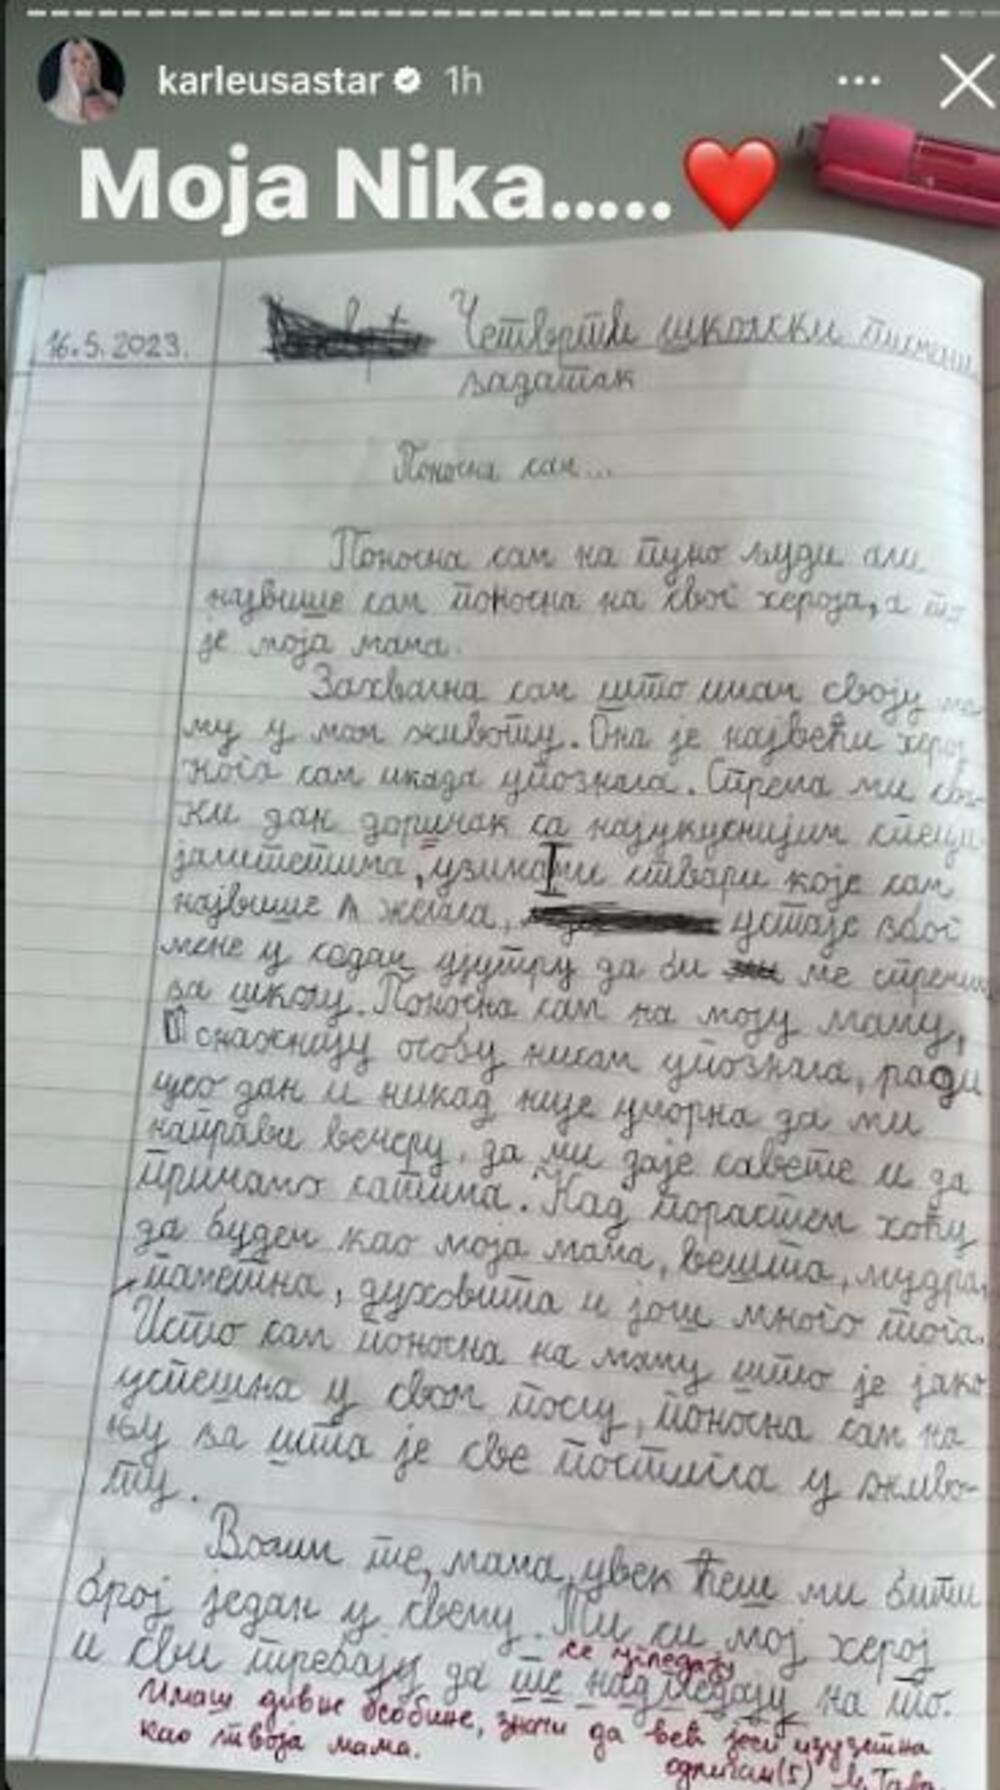 karleusastar 1h
Moja Nika.....❤️
16.5.2023. Четврти школски писмени
задатак
Поносна сам...
Поносна сам на пуно људи али
највише сам поносна на свог хероја, а то
је моја мама.
Захвална сам што имам своју ма-
му у мом животу. Она је највећи херој
кога сам икада упознала. Спрема ми сва-
ки дан доручак са најукуснијим специ-
јалитетима, узима ми ствари које сам
највише желела, устаје због
мене у седам ујутру да би ме спремила
за школу. Поносна сам на моју маму,
снажнију особу нисам упознала, ради
цео дан и никад није уморна да ми
направи вечеру, да ми даје савете и да
причамо сатима. Кад порастем хоћу
да будем као моја мама, вешта, мудра,
паметна, духовита и још много тога.
Исто сам поносна на маму што је јако
успешна у свом послу, поносна сам на
њу за шта је све постигла у живо-
ту.
Волим те, мама, увек ћеш ми бити
број један у свему. Ти си мој херој
се угледају
и сви требају да те надгледају на то.
Имаш дивне особине, значи да већ јеси изузетна
као твоја мама.
одличан (5)